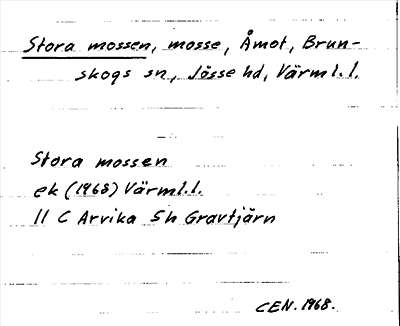 Stora mossen, mosse, Åmot, Brun-
skogs sn, Jösse hd, Värml.l.
Stora mossen
ek (1968) Värml.l.
11 C Arvika 5h Gravtjärn
CEN. 1968.